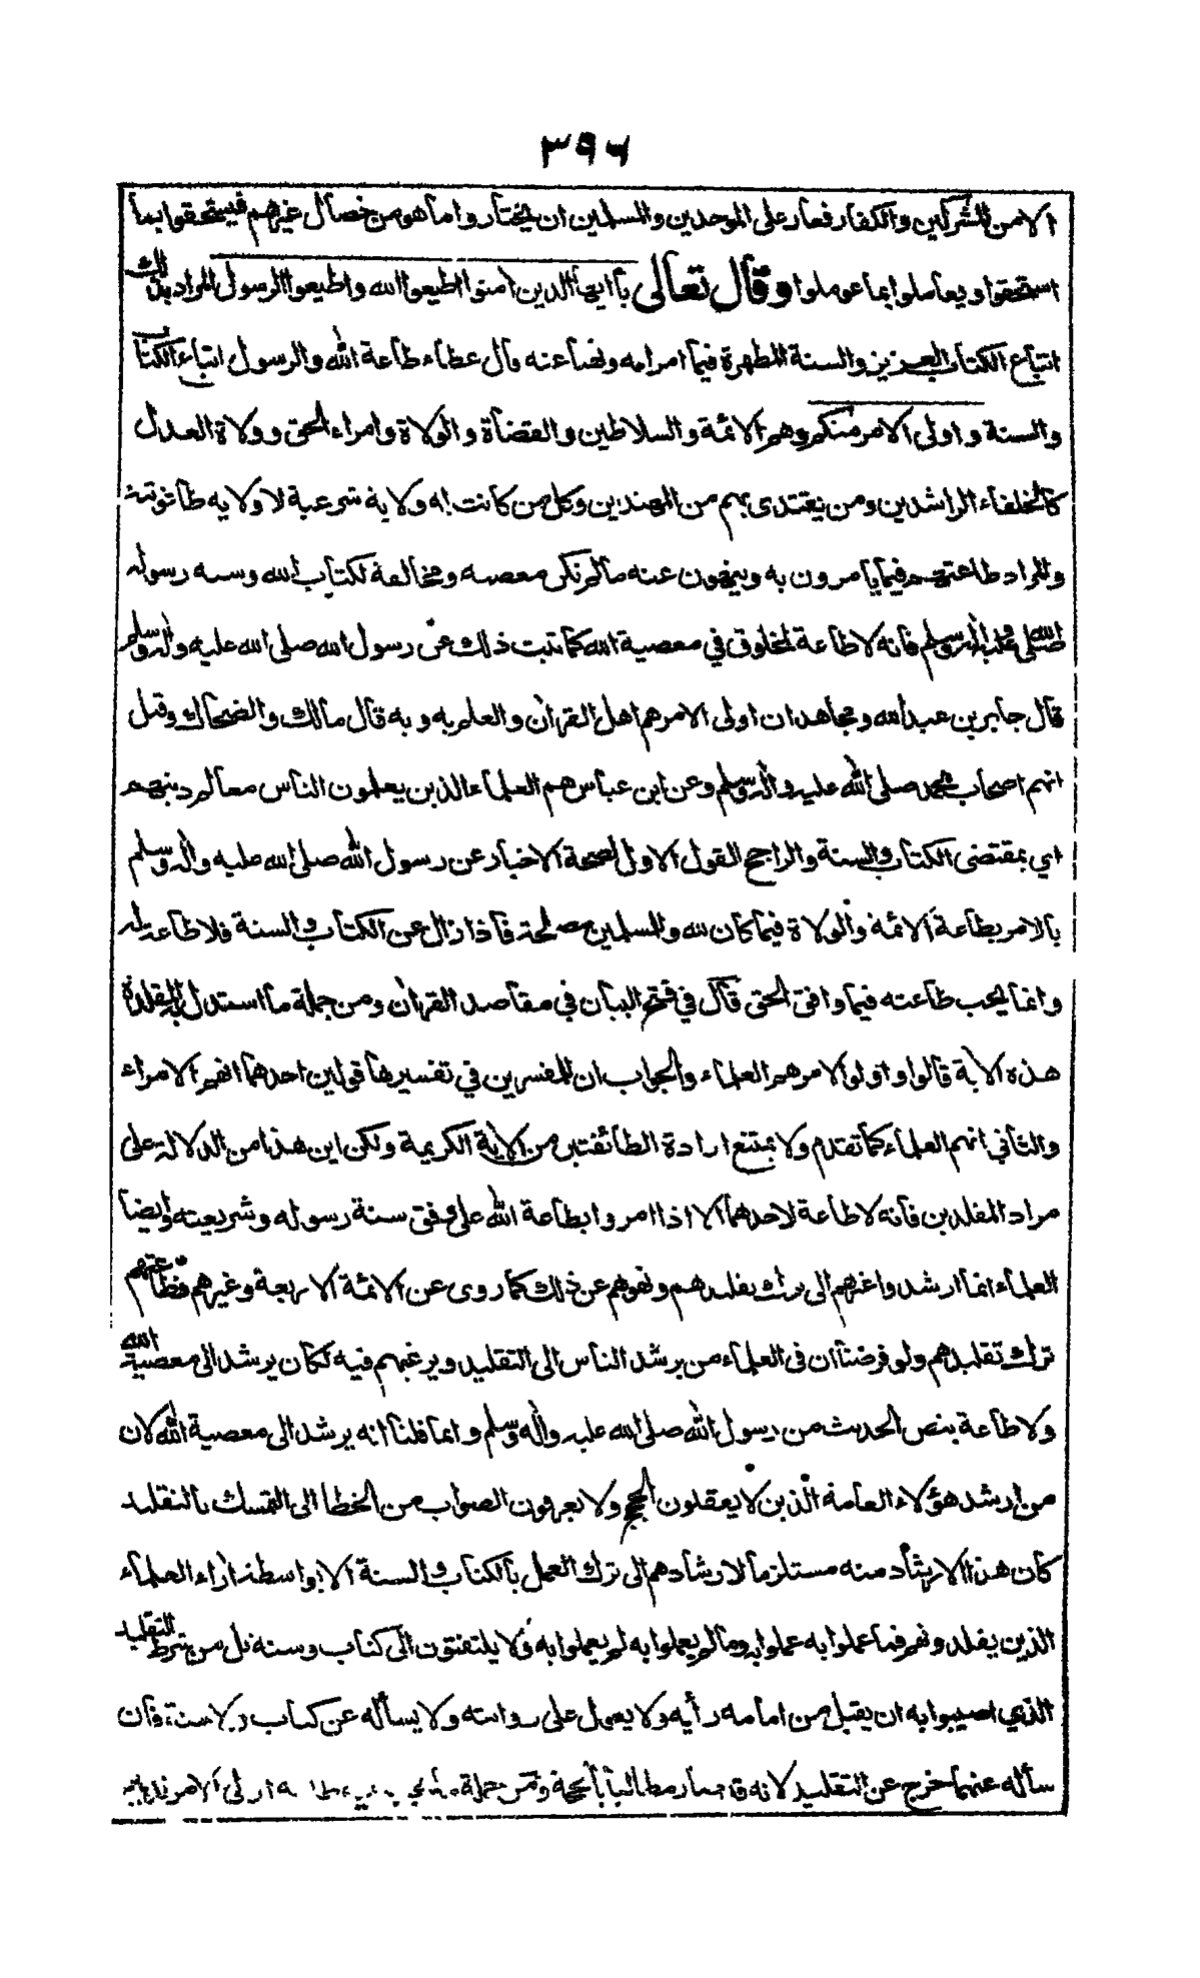 ٣٩٦
الا من المشركين والكفار فعار على الموحدين والمسلمين ان يختاروا ما هو من خصال غيرهم فيستحقوا بما
استحقوا ويعاملوا بما عوملوا وقال تعالى يا ايها الذين امنوا اطيعوا الله واطيعوا الرسول المراد بذلك
اتباع الكتاب العزيز والسنة المطهرة فيما امرا به ونهيا عنه قال عطاء طاعة الله والرسول اتباع الكتاب
والسنة واولى الامر منكم وهم الائمة والسلاطين والقضاة والولاة وامراء الحق وولاة العدل
كالخلفاء الراشدين ومن يقتدى بهم من المهتدين وكل من كانت له ولاية شرعية لا ولاية طاغوتية
والمراد طاعتهم فيما يامرون به وينهون عنه ما لم تكن معصية ومخالفة لكتاب الله وسنة رسوله
صلى الله عليه واله وسلم فانه لا طاعة لمخلوق في معصية الله كما ثبت ذلك عن رسول الله صلى الله عليه واله وسلم
قال جابر بن عبد الله ومجاهد ان اولى الامر هم اهل القران والعلم به وبه قال مالك والضحاك وقيل
انهم اصحاب محمد صلى الله عليه واله وسلم وعن ابن عباس هم العلماء الذين يعلمون الناس معالم دينهم
اي بمقتضى الكتاب والسنة والراجح القول الاول لصحة الاخبار عن رسول الله صلى الله عليه واله وسلم
بالامر بطاعة الائمة والولاة فيما كان لله والمسلمين مصلحة فاذا زال عن الكتاب والسنة فلا طاعة له
وانما يجب طاعته فيما وافق الحق قال في فتح البيان في مقاصد القران ومن جملة ما استدل به المقلدة
هذه الاية قالوا واولوا الامر هم العلماء والجواب ان للمفسرين في تفسيرها قولين احدهما انهم الامراء
والثاني انهم العلماء كما تقدم ولا يمتنع ارادة الطائفتين من الاية الكريمة ولكن اين هذا من الدلالة على
مراد المقلدين فانه لا طاعة لاحدهما الا اذا امروا بطاعة الله على وفق سنة رسوله وشريعته وايضا
العلماء انما ارشدوا غيرهم الى ترك تقليدهم ونهوهم عن ذلك كما روى عن الائمة الاربعة وغيرهم فطاعتهم
ترك تقليدهم ولو فرضنا ان في العلماء من يرشد الناس الى التقليد ويرغبهم فيه لكان يرشد الى معصية الله
ولا طاعة بنص الحديث من رسول الله صلى الله عليه واله وسلم وانما قلنا انه يرشد الى معصية الله لان
من ارشد هؤلاء العامة الذين لا يعقلون الحجج ولا يعرفون الصواب من الخطا الى التمسك بالتقليد
كان هذا الارشاد منه مستلزما لارشادهم الى ترك العمل بالكتاب والسنة الا بواسطة اراء العلماء
الذين يقلدونهم فما عملوا به عملوا به وما لم يعملوا به لم يعملوا به ولا يلتفتون الى كتاب وسنة بل من شرط التقليد
الذي اصيبوا به ان يقبل من امامه رأيه ولا يعول على روايته ولا يسأله عن كتاب ولا سنة فان
سأله عنهما خرج عن التقليد لانه قد صار مطالبا بالحجة ومن جملة ما يجب فيه طاعة اولى الامر تدبير